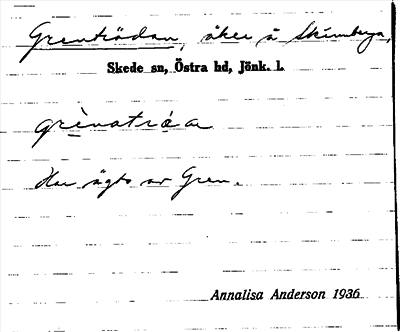 Grenträdan, åker å Skinnberga,
Skede sn, Östra hd, Jönk. l.
grènatrá a
Har ägts av Gren.
Annalisa Anderson 1936